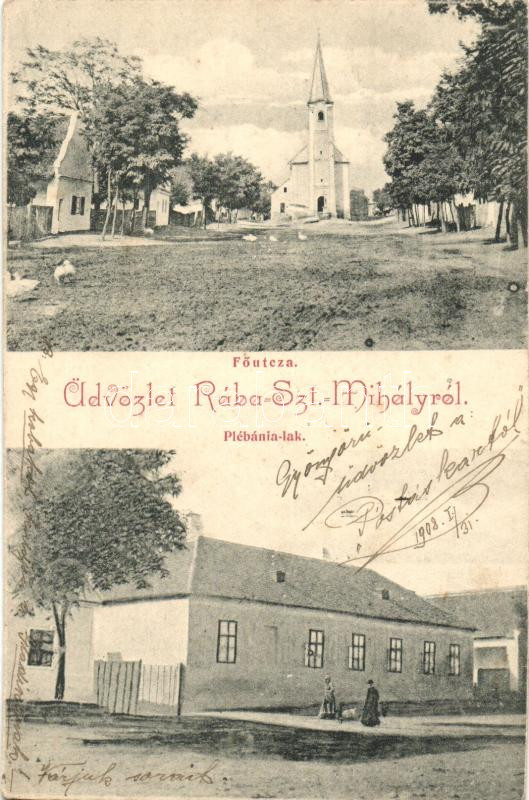 Főutcza.
Üdvözlet Rába-Szt.-Mihályról.
Plébánia-lak.
Gyöngörű
üdvözlet a
Postás kartól
1903. I/31.
Várjuk sorait.